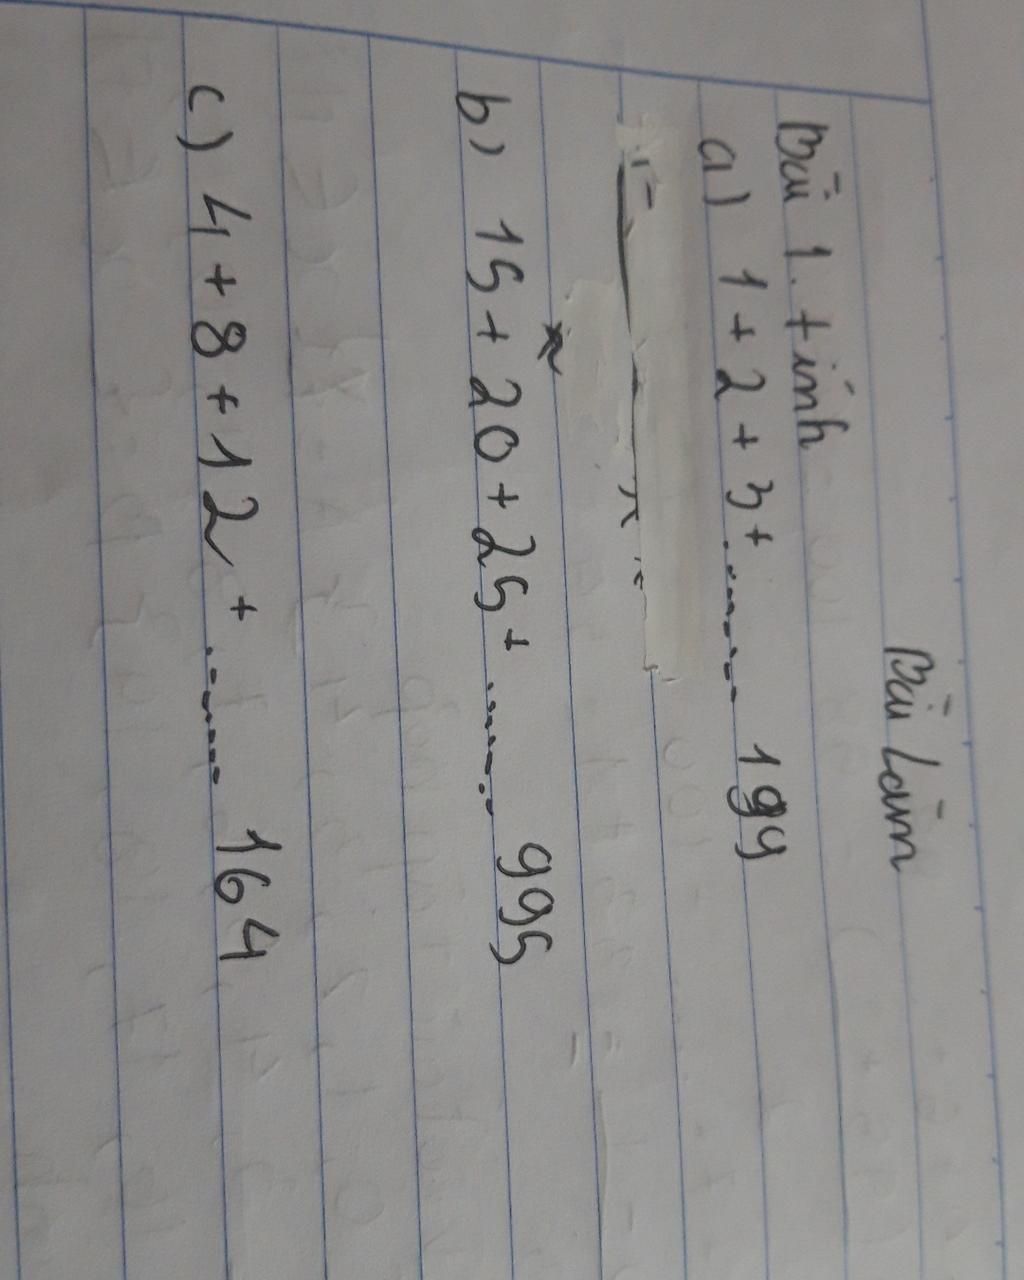 Bài Làm
Bài 1. tính
a) 1 + 2 + 3 + ........ 199
b) 15 + 20 + 25 + ........ 995
c) 4 + 8 + 12 + ........ 164